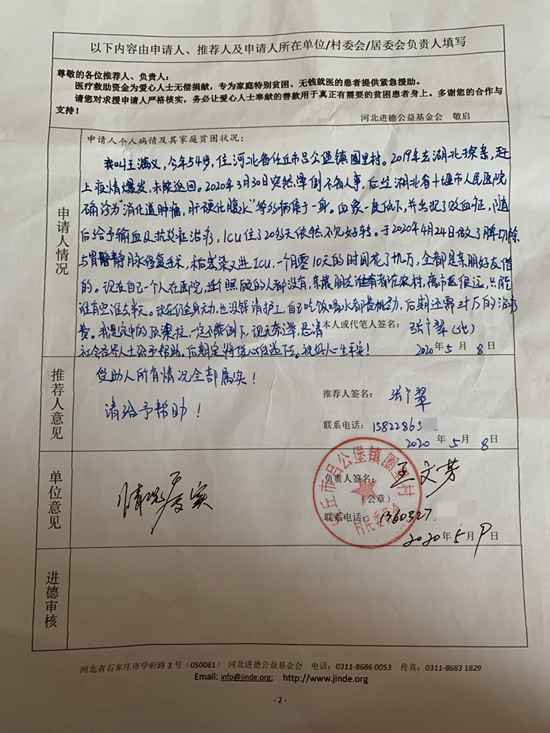 以下内容由申请人、推荐人及申请人所在单位/村委会/居委会负责人填写
尊敬的各位推荐人、负责人：
医疗救助资金为爱心人士无偿捐献，专为家庭特别贫困、无钱就医的患者提供紧急援助。
请您对求援申请人严格核实，务必让爱心人士奉献的善款用于真正有需要的贫困患者身上。多谢您的合作与
支持！
河北进德公益基金会 敬启
申请人情况
申请人个人病情及其家庭贫困状况：
我叫王满义，今年54岁，住河北省任丘市吕公堡镇圈里村。2019年去湖北探亲，赶
上疫情爆发，未能返回。2020年3月30日突然晕倒不省人事，后经湖北省十堰市人民医院
确诊为"消化道肿瘤，肝硬化腹水"等多种病集于一身。血象一度低下，并出现了败血症，随
后给予输血及抗炎症治疗，ICU住了20多天依然不见好转。于2020年4月24日做了脾切除
与胃静脉修复手术，术后感染又进ICU，一个月零10天的时间花了九万，全部是亲朋好友借
的。现在自己一个人在医院，连个照顾的人都没有，亲戚朋友
谁有空谁去半天。
费。我是家中的顶梁柱，一定不能倒下，
本人或代笔人签名：张广翠（代）
社会各界人士给予帮助，后期定将爱心传递下去。祝好人一生平安！
2020年5月8日
推荐人意见
受助人所有情况全部属实！
请给予帮助！
推荐人签名：张广翠
联系电话：15822865
2020年5月8日
单位意见
情况属实
负责人签名：王文芳
（公章）
联系电话：1360327
2020年5月9日
任丘市吕公堡镇圈里村
村民委员会
进德审核
年 月 日
河北省石家庄市学府路3号（050061） 河北进德公益基金会 电话：0311-8686 0053 传真：0311-8683 1829
Email: info@jinde.org; http://www.jinde.org
- 2 -